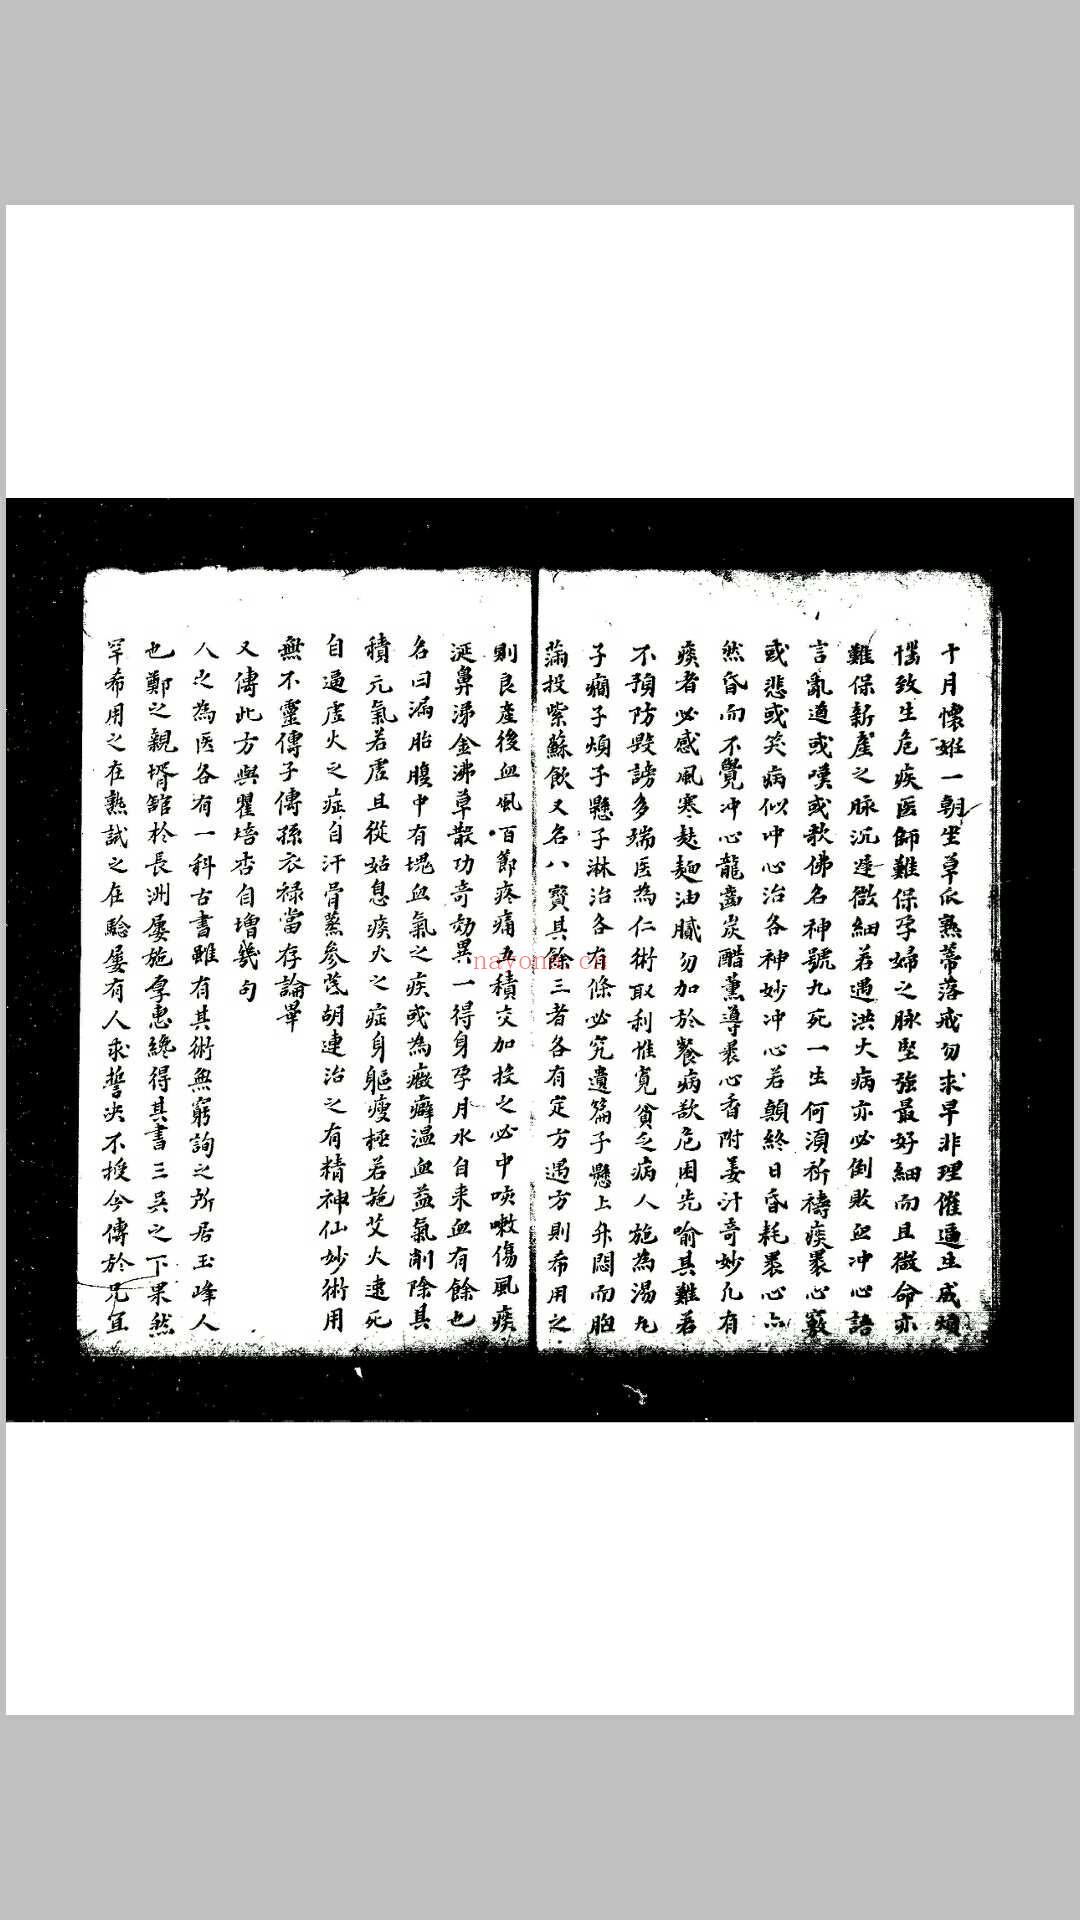 十月懷姙一朝坐草瓜熟蒂落戒勿求早非理催逼生成煩
惱致生危疾医師難保孕婦之脉堅強最好細而且微命亦
難保新產之脉沉遲微細若遇洪大病亦必倒敗血冲心語
言亂道或嘆或歌佛名神號九死一生何須祈禱痰裹心竅
或悲或笑病似冲心治各神妙冲心若顛終日昏耗裹心六
然昏而不覺冲心龍齒炭醋薰導裹心香附姜汁奇妙凡有
痰者必感風寒麸麺油膩勿加於餐病欲危困先喻其難若
不預防毀謗多端医為仁術取利惟寬貧乏病人施為湯丸
子癇子煩子懸子淋治各有條必究遺篇子懸上升悶而胎
滿投紫蘇飲又名八寶其餘三者各有定方遇方則希用之
則良產後血風百節疼痛五積交加投之必中咳嗽傷風痰
涎鼻涕金沸草散功奇効異一得身孕月水自来血有餘也
名曰漏胎腹中有塊血氣之疾或為癥癖溫血益氣削除其
積元氣若虛且從姑息痰火之症身軀瘦極若施艾火速死
自逼虛火之症自汗骨蒸參芪胡連治之有精神仙妙術用
無不靈傳子傳孫衣祿當存論畢
又傳此方與瞿培杏自增幾句
人之為医各有一科古書雖有其術無窮詢之所居玉峰人
也鄭之親壻舘於長洲屢施厚惠纔得其書三吴之下果然
罕希用之在熟試之在驗屢有人求誓决不授今傳於兄宜
nayona.cn